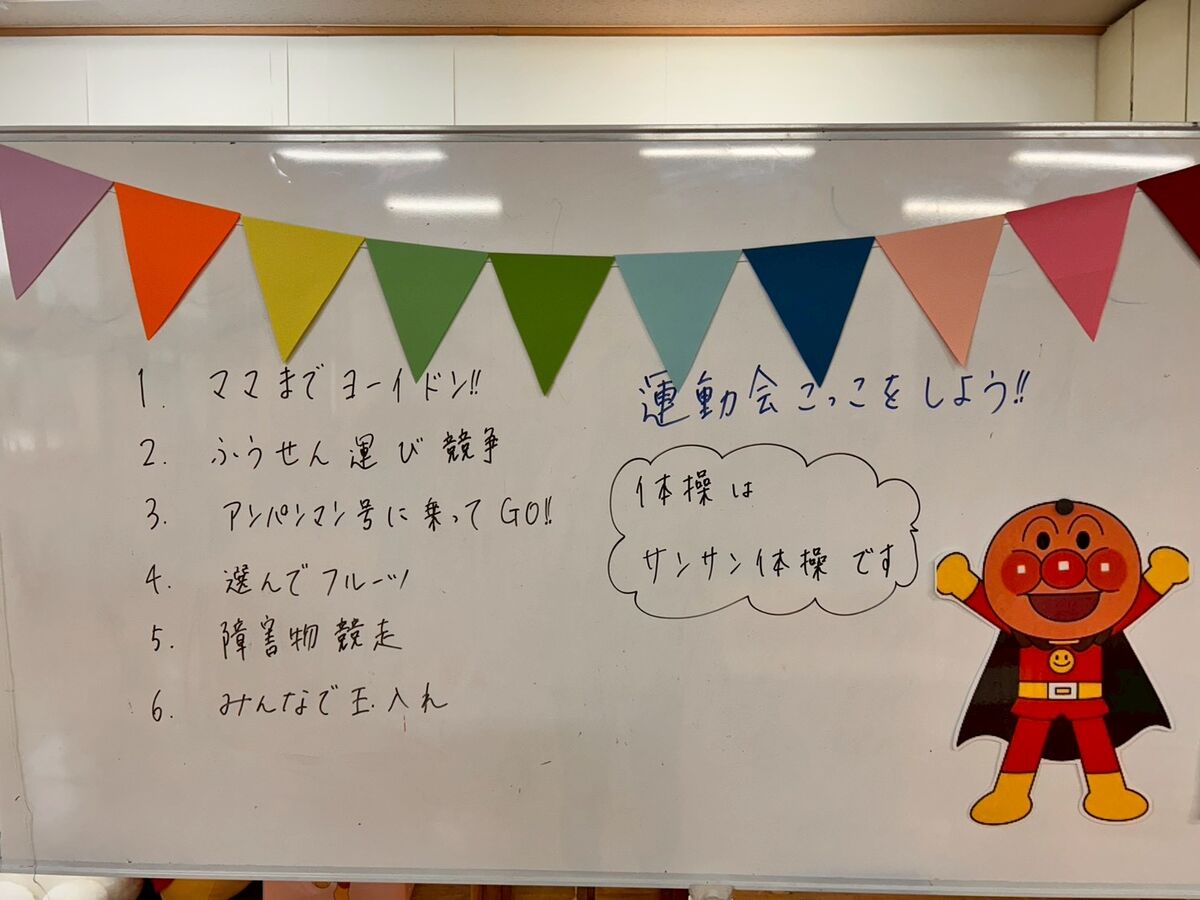 1. ママまで ヨーイドン!!
2. ふうせん 運び 競争
3. アンパンマン号に乗ってGO!!
4. 選んでフルーツ
5. 障害物競走
6. みんなで玉入れ
運動会ごっこをしよう!!
体操は
サンサン体操です